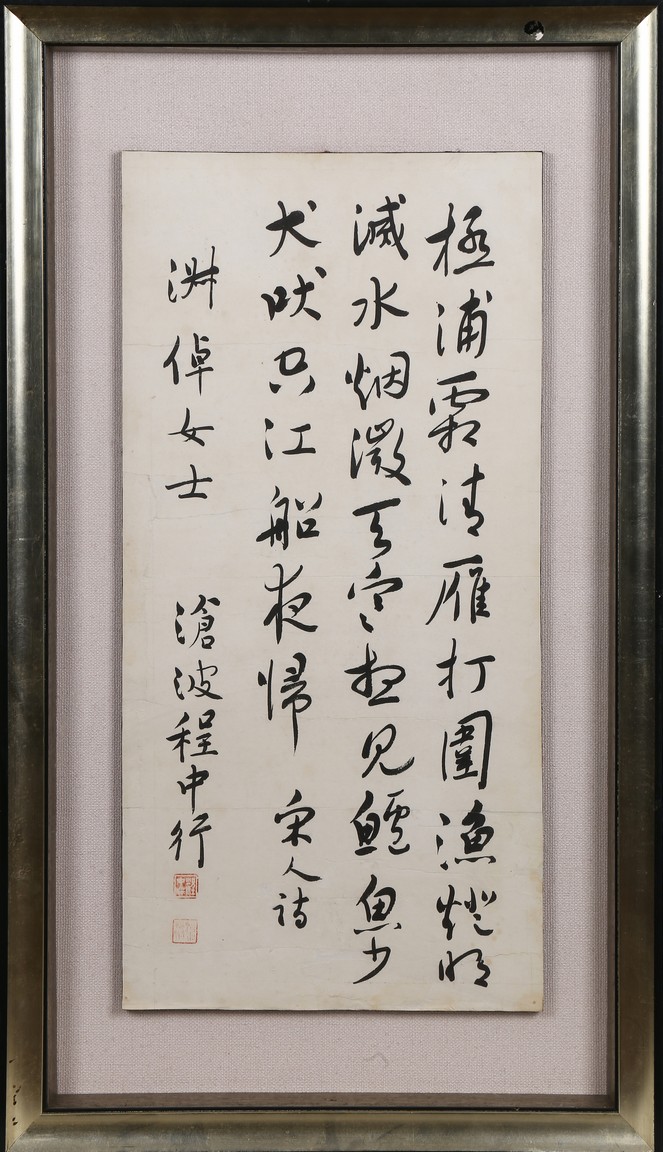 極浦霜清雁打圍漁燈明
滅水烟微天寒想見鱸魚少
犬吠空江船夜歸 宋人詩
淑倬女士
滄波程中行